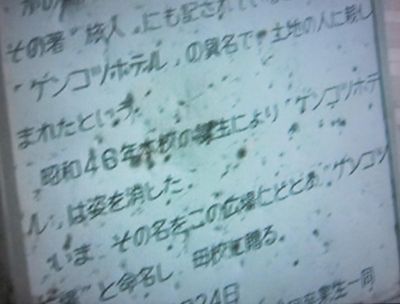 その著"旅人"にも記されている
"ゲンコツホテル"の異名で土地の人に親し
まれたという。
昭和46年本校の
生により"ゲンコツホテ
ル"は姿を消した。
いま、その名をこの広場にとどめ"ゲンコツ
"と命名し、母校に贈る。
24日
生一同